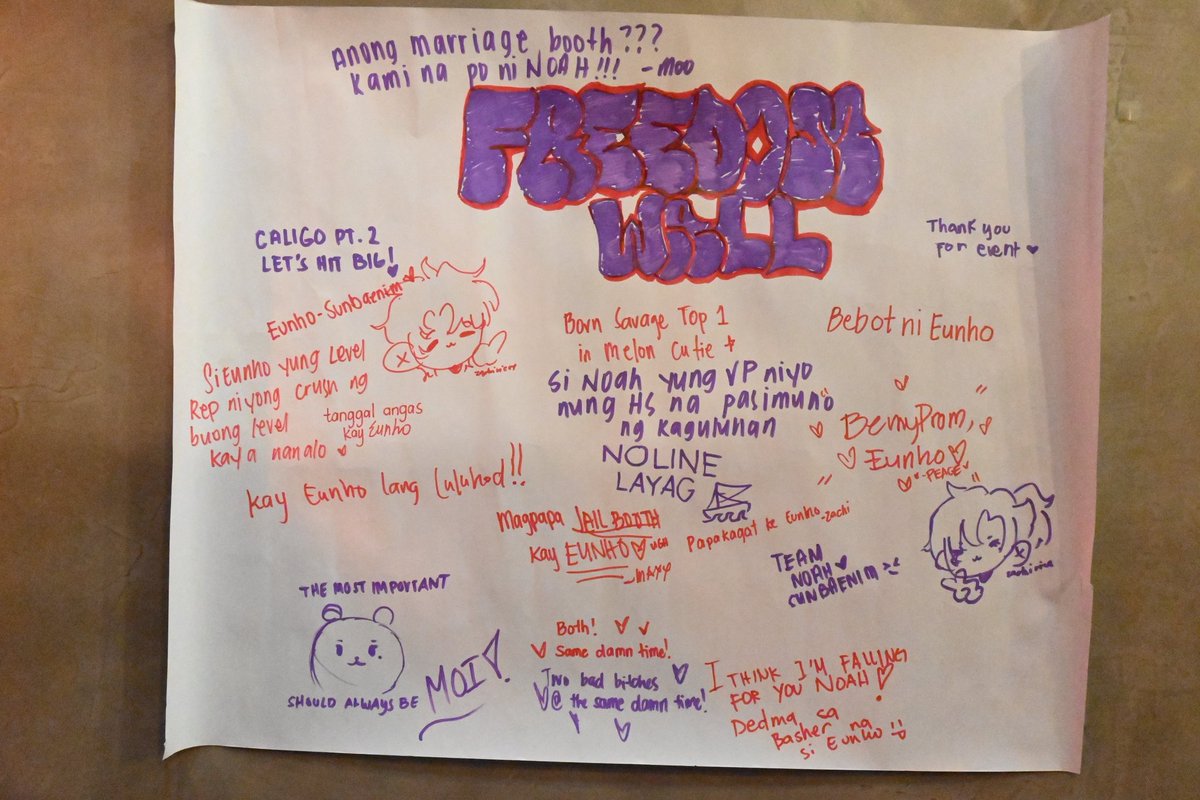 Anong marriage booth???
Kami na po ni NOAH!!! -Moo
FREEDOM
WALL
CALIGO PT. 2
LET'S HIT BIG!
Eunho-Sunbaenim
Si Eunho yung level
Rep niyong crush ng
buong level
kaya nanalo
tanggal angas
kay Eunho
Kay Eunho lang luluhod!!
Thank you
for event
Born Savage Top 1
in Melon Cutie
Si Noah yung VP niyo
nung HS na pasimuno
ng kaguluhan
NOLINE
LAYAG
Bebot ni Eunho
BennyProm,
Eunho
-PEACE
Magpapa JAIL BOOTH
kay EUNHO UGH
-MAXY
Papakagat ke Eunho -zachi
TEAM
NOAH
SUNBAENIM
THE MOST IMPORTANT
SHOULD ALWAYS BE
MOI!
Both!
Same damn time!
Two bad bitches
@ the same damn time!
I THINK I'M FALLING
FOR YOU NOAH!
Dedma sa
Basher na
si Eunho